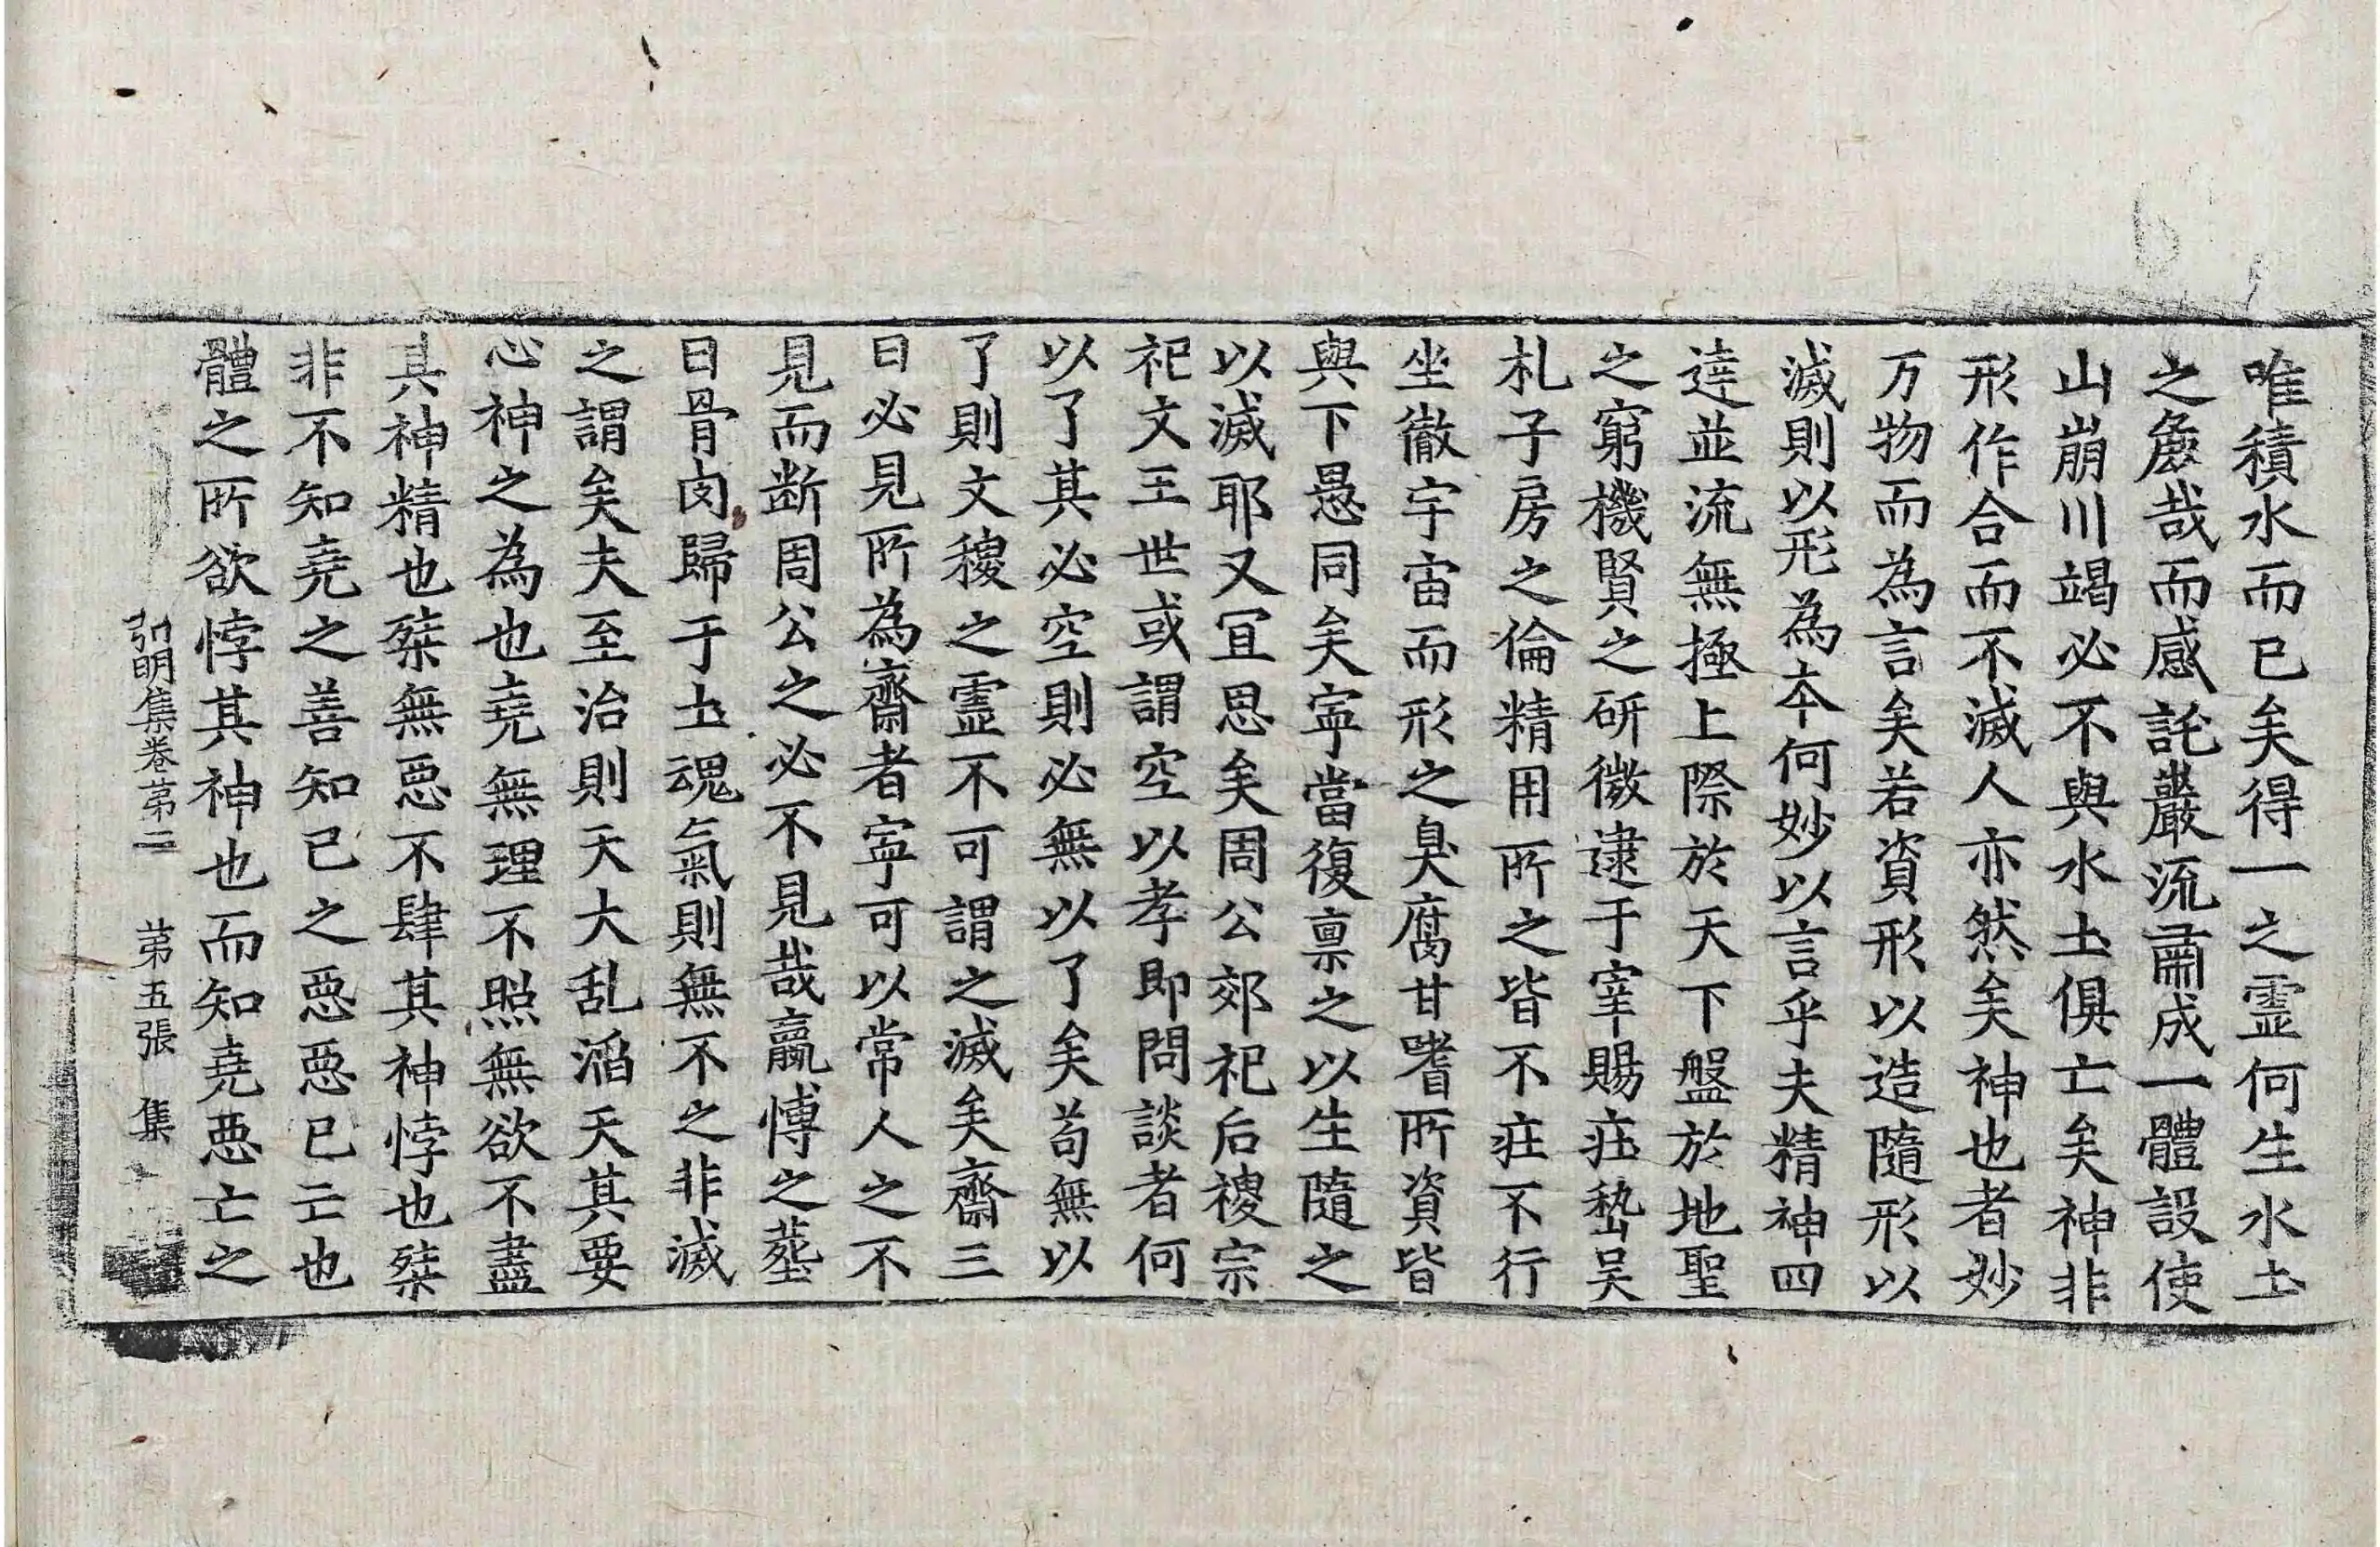 唯積水而已矣得一之靈何生水土
之麁哉而感託巖流肅成一體設使
山崩川竭必不與水土俱亡矣神非
形作合而不滅人亦然矣神也者妙
万物而為言矣若資形以造隨形以
滅則以形為本何妙以言乎夫精神四
達並流無極上際於天下盤於地聖
之窮機賢之研微逮于宰賜莊嵆吳
札子房之倫精用所之皆不疘不行
坐徹宇宙而形之臭腐甘嗜所資皆
與下愚同矣寧當復稟之以生隨之
以滅耶又冝思矣周公郊祀后稷宗
祀文王世或謂空以孝即問談者何
以了其必空則必無以了矣苟無以
了則文稷之靈不可謂之滅矣齋三
日必見所為齋者寧可以常人之不
見而断周公之必不見哉嬴愽之葬
曰骨肉歸于土魂氣則無不之非滅
之謂矣夫至治則天大乱滔天其要
心神之為也堯無理不照無欲不盡
其神精也桀無惡不肆其神悖也桀
非不知堯之善知已之惡惡已亡也
體之所欲悖其神也而知堯惡亡之
弘明集卷第二 第五張 集